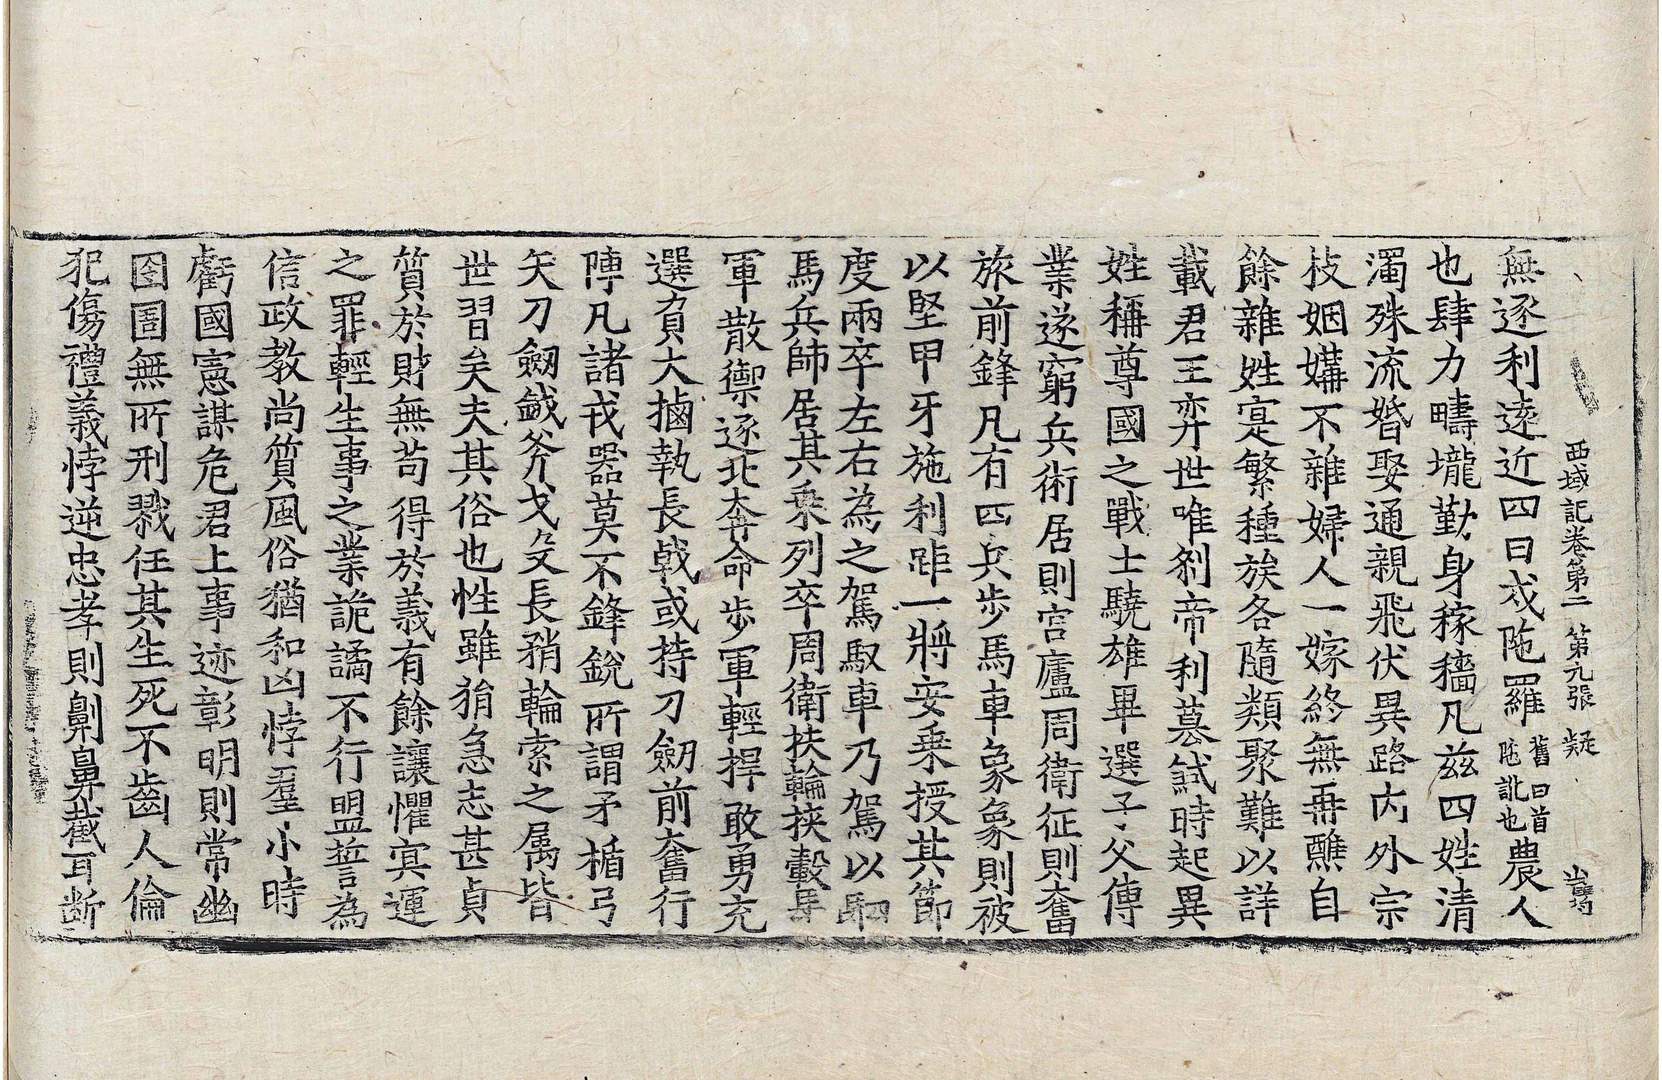 西域記卷第二 第九張 疑
無逐利遠近四曰戍陁羅舊曰首陁訛也農人
也肆力疇壠勤身稼穡凡兹四姓清
濁殊流婚娶通親飛伏異路內外宗
枝姻媾不雜婦人一嫁終無再醮自
餘雜姓寔繁種族各隨類聚難以詳
載君王弈世唯剎帝利墓弒時起異
姓稱尊國之戰士驍雄畢選子父傳
業遂窮兵術居則宮廬周衛征則奮
旅前鋒凡有四兵步馬車象象則被
以堅甲牙施利距一將安乗授其節
度兩卒左右為之駕馭車乃駕以駟
馬兵帥居其乗列卒周衛扶輪挾轂馬
軍散禦逐北奔命步軍輕捍敢勇充
選負大㯭執長戟或持刀劒前奮行
陣凡諸戎器莫不鋒銳所謂矛楯弓
矢刀劒鉞斧戈殳長矟輪索之属皆
世習矣夫其俗也性雖狷急志甚貞
質於財無苟得於義有餘讓懼冥運
之罪輕生事之業詭譎不行盟誓為
信政教尚質風俗猶和凶悖羣小時
虧國憲謀危君上事迹彰明則常幽
囹圄無所刑戮任其生死不齒人倫
犯傷禮義悖逆忠孝則劓鼻截耳断